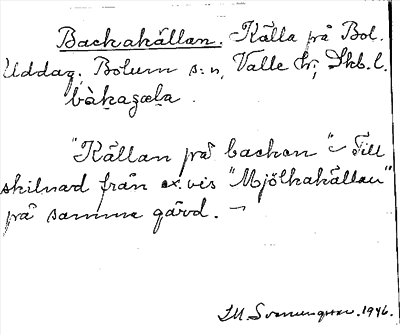 Backakällan. Källa på Bol.
Uddag. Bolum s:n, Valle hr; Skb. l.
"Källan på backen" – Till
skilnad från ex. vis "Mjölkakällan"
på samma gård. –
1946.